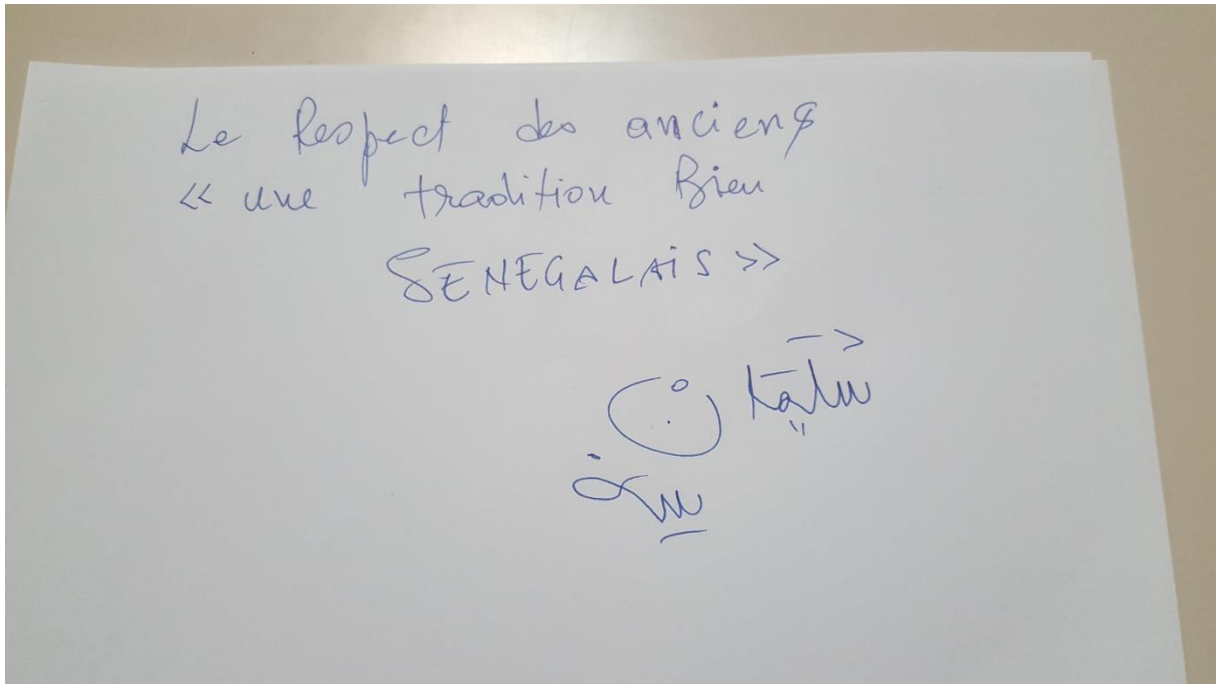 Le Respect des anciens
« une tradition Bien
SENEGALAIS »